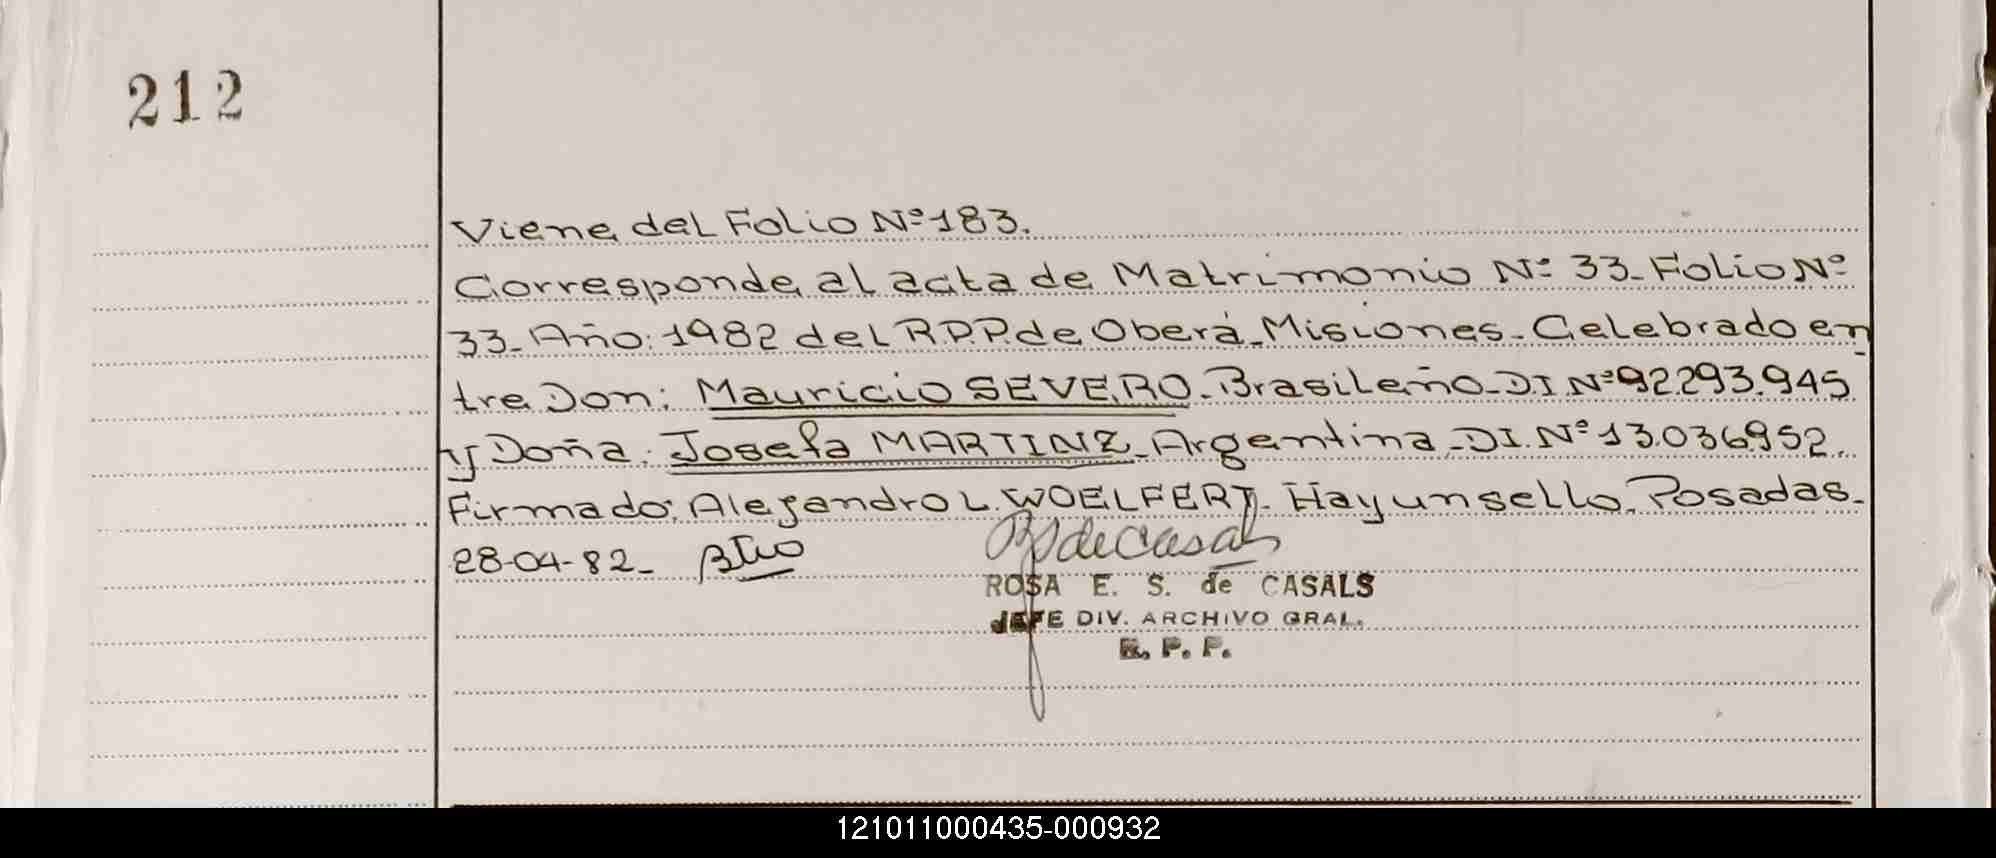 212
Viene del Folio Nº 183.
Corresponde al acta de Matrimonio Nº 33_ Folio Nº
33_ Año: 1982 del R.P.P. de Oberá_ Misiones_ Celebrado en
tre Don: Mauricio SEVERO_ Brasileño_ D.I. Nº 92.293.945
y Doña: Josefa MARTINZ_ Argentina_ D.I. Nº 13.036.952.
Firmado: Alejandro L. WOELFERT_ Hay un sello_ Posadas_
28-04-82_
ROSA E. S. de CASALS
JEFE DIV. ARCHIVO GRAL.
R. P. P.
121011000435-000932